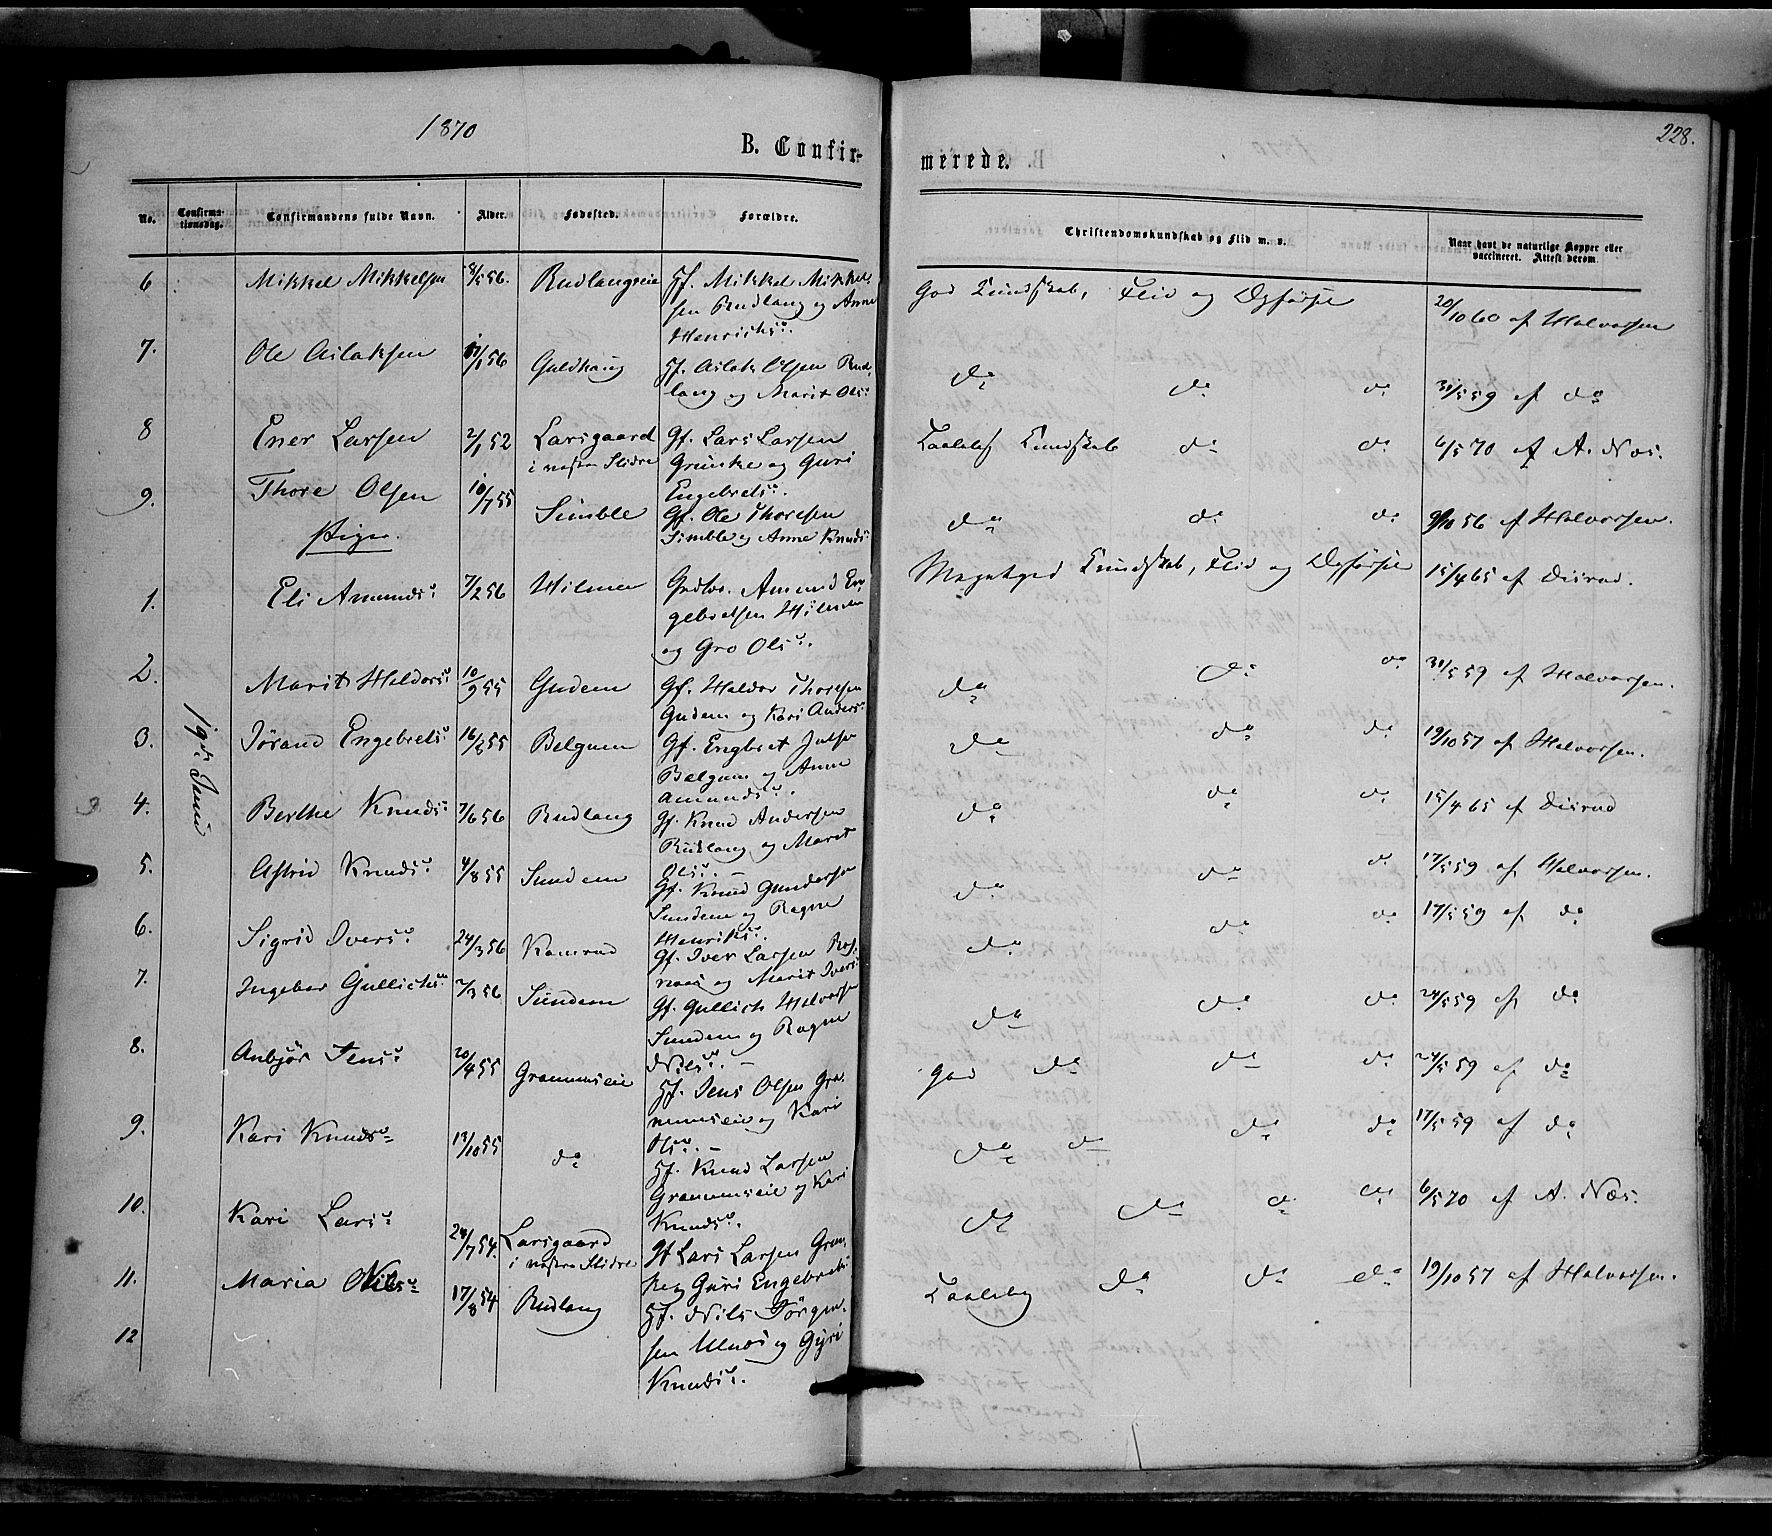 1870
B. Confir-
merede.
228.
No.
Confirma-
tionsdag.
Confirmandens fulde Navn.
Alder.
Fødested.
Forældre.
Christendomskundskab og Flid m. v.
Naar havt de naturlige Kopper eller
vaccineret. Attest derom.
6 Mikkel Mikkelsen 8/5 56. Rudlangseie Hf. Mikkel Mikkel-
sen Rudlang og Anne
Henriksd.
God Kundskab, Flid og Opførsel 20/10 60 af Halvorsen
7. Ole Aslaksen 56 Guldhaug Hf. Aslak Olsen Rud-
lang og Marit Olsd.
do do do 31/5 59 af do
8 Ener Larsen 2/1 52 Larsgaard Gf. Lars Larsen
i vestre Slidre Grünke og Guri
Engebretsd.
Taalelig Kundskab do do 6/5 70 af A. Næs.
9. Thore Olsen 10/7 55 Simble Gf. Ole Thoresen
Simble og Anne Knudsd.
do do do 9/10 56 af Halvorsen.
Piger.
19de Juni
1. Eli Amundsd. 7/2 56 Hilmen Gaardbr. Amund En-
gebretsen Hilmen
og Gro Olsd.
Megetgod Kundskab, Flid og Opførsel 15/4 65 af Disrud.
2. Marit Heldorsd. 10/9 55 Gudem Gf. Heldor Thoresen
Gudem og Kari Andersd.
do do do 31/5 59 af Halvorsen.
3. Jørand Engebretsd. 16/2 55 Belgum Gf. Engbret Julsen
Belgum og Anne
Amundsd.
do do do 19/10 57 af Halvorsen.
4. Berthe Knudsd. 7/6 56 Rudlang Gf. Knud Andersen
Rudlang og Marit
Olsd.
do do do 15/4 65 af Disrud
5. Astrid Knudsd. 4/8 55 Sundem Gf. Knud Gundersen
Sundem og Ragne
Henriksd.
do do do 17/5 59 af Halvorsen.
6. Sigrid Iversd. 24/3 56 Kamrud Gf. Iver Larsen
og Marit Iversd.
do do do 17/5 59 af do
7. Ingebor Gullichsd. 2/3 56 Sundem Gf. Gullich Halvorsen
Sundem og Ragne
Nilsd.
do do do 24/5 59 af do
8. Anbjør Jensd. 20/4 55 Granumseie Hf. Jens Olsen Gra-
numseie og Kari
Olsd.
God do do do 24/5 59 af do
9. Kari Knudsd. 13/10 55 do Hf. Knud Larsen
Granumseie og Kari
Knudsd.
do do do do 17/5 59 af do
10. Kari Larsd. 24/7 54. Larsgaard Gf Lars Larsen Grün-
i vestre Slidre ke og Guri Engebretsd.
do do do do 6/5 70 af A. Næs.
11. Maria Nilsd. 17/8 54 Rudlang Hf. Nils Jørgen-
sen Ulnæs og Gyri
Knudsd.
Taalelig do do do 19/10 57 af Halvorsen.
12